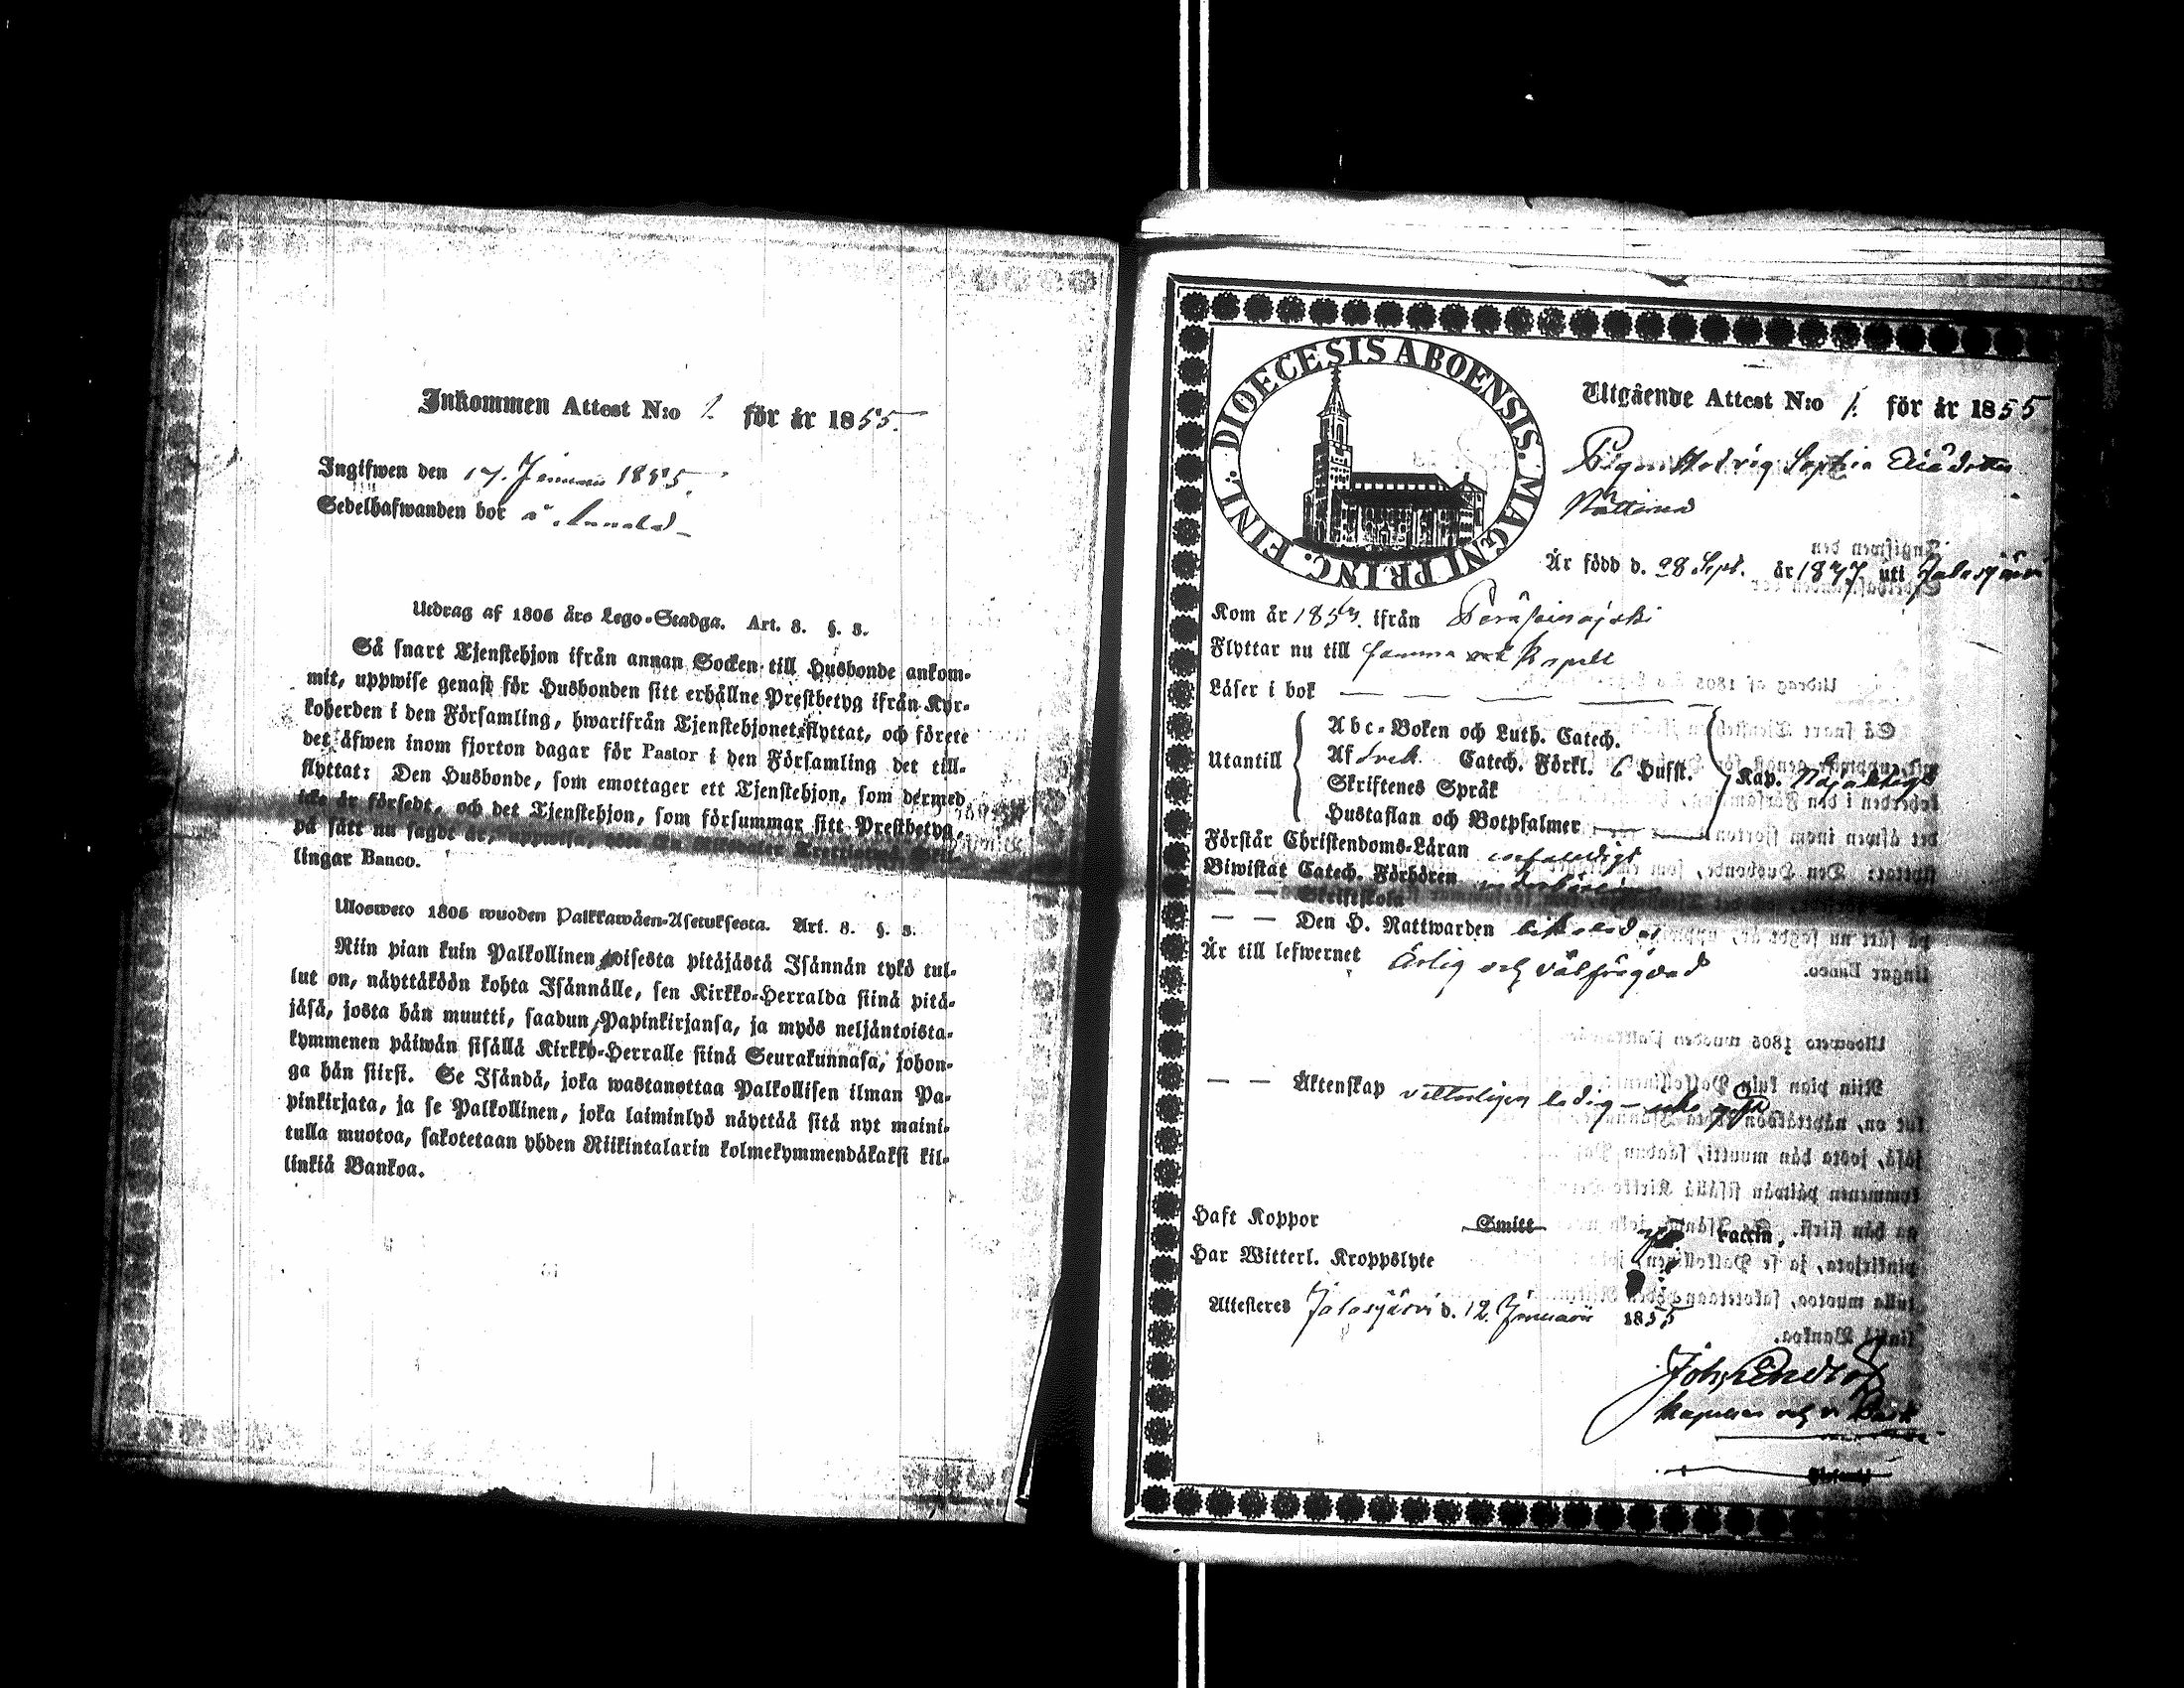 Inkommen Attest N:o 1. för år 1855.
Ingifwen den 17. Januari 1855.
Sedelhafwanden bor å
Utdrag af 1805 års Lego-Stadga. Art. 8. §. 8.
Så snart Tjenstehjon ifrån annan Socken till Husbonde ankom-
mit, uppwise genast för Husbonden sitt erhållne Prestbetyg ifrån Kyr-
koherden i den Församling, hwarifrån Tjenstehjonet flyttat, och förete
det äfwen inom fjorton dagar för Pastor i den Församling det till-
flyttat: Den Husbonde, som emottager ett Tjenstehjon, som dermed
icke är försedt, och det Tjenstehjon, som försummar sitt Prestbetyg,
på sätt nu sagdt är, uppwisa,
lingar Banco.
Ulosweto 1805 wuoden Palkkawäen-Asetuksesta. Art. 8. §. 8.
Niin pian kuin Palkollinen toisesta pitäjästä Isännän tykö tul-
lut on, näyttäköön kohta Isännälle, sen Kirkko-Herralda siinä pitä-
jäsä, josta hän muutti, saadun Papinkirjansa, ja myös neljäntoista-
kymmenen päiwän sisällä Kirkko-Herralle siinä Seurakunnasa, johon-
ga hän siirsi. Se Isändä, joka wastanottaa Palkollisen ilman Pa-
pinkirjata, ja se Palkollinen, joka laiminlyö näyttää sitä nyt maini-
tulla muotoa, sakotetaan yhden Riikintalarin kolmekymmendäkaksi kil-
linkiä Bankoa.
DIOECESIS ABOENSIS. MAGNI PRINC. FINL.
Utgående Attest N:o 1. för år 1855
Pigan Hedvig Sophia Eliædotter
Är född d. 28 Sept. år 1837 uti Jalasjärvi
Kom år 1853. ifrån Peräseinäjoki
Flyttar nu till samma Kapell
Läser i bok — — — — —
Utantill
Abc-Boken och Luth. Catech.
Af Sveb. Catech. Förkl. 6 Hufst.
Skriftenes Språk
Hustaflan och Botpsalmer
Kap. Nöjaktigt
Förstår Christendoms-Läran enfaldigt
Biwistat Catech. Förhören
— — Skriftskola
— — Den H. Nattwarden
Är till lefwernet Ärlig och välfrägdad
— — Äktenskap vetterligen ledig
Haft Koppor Smitt vaccin.
Har Witterl. Kroppslyte
Attesteres Jalasjärvi d. 12. Januarii 1855
Joh.
Kapellan och v. Past.